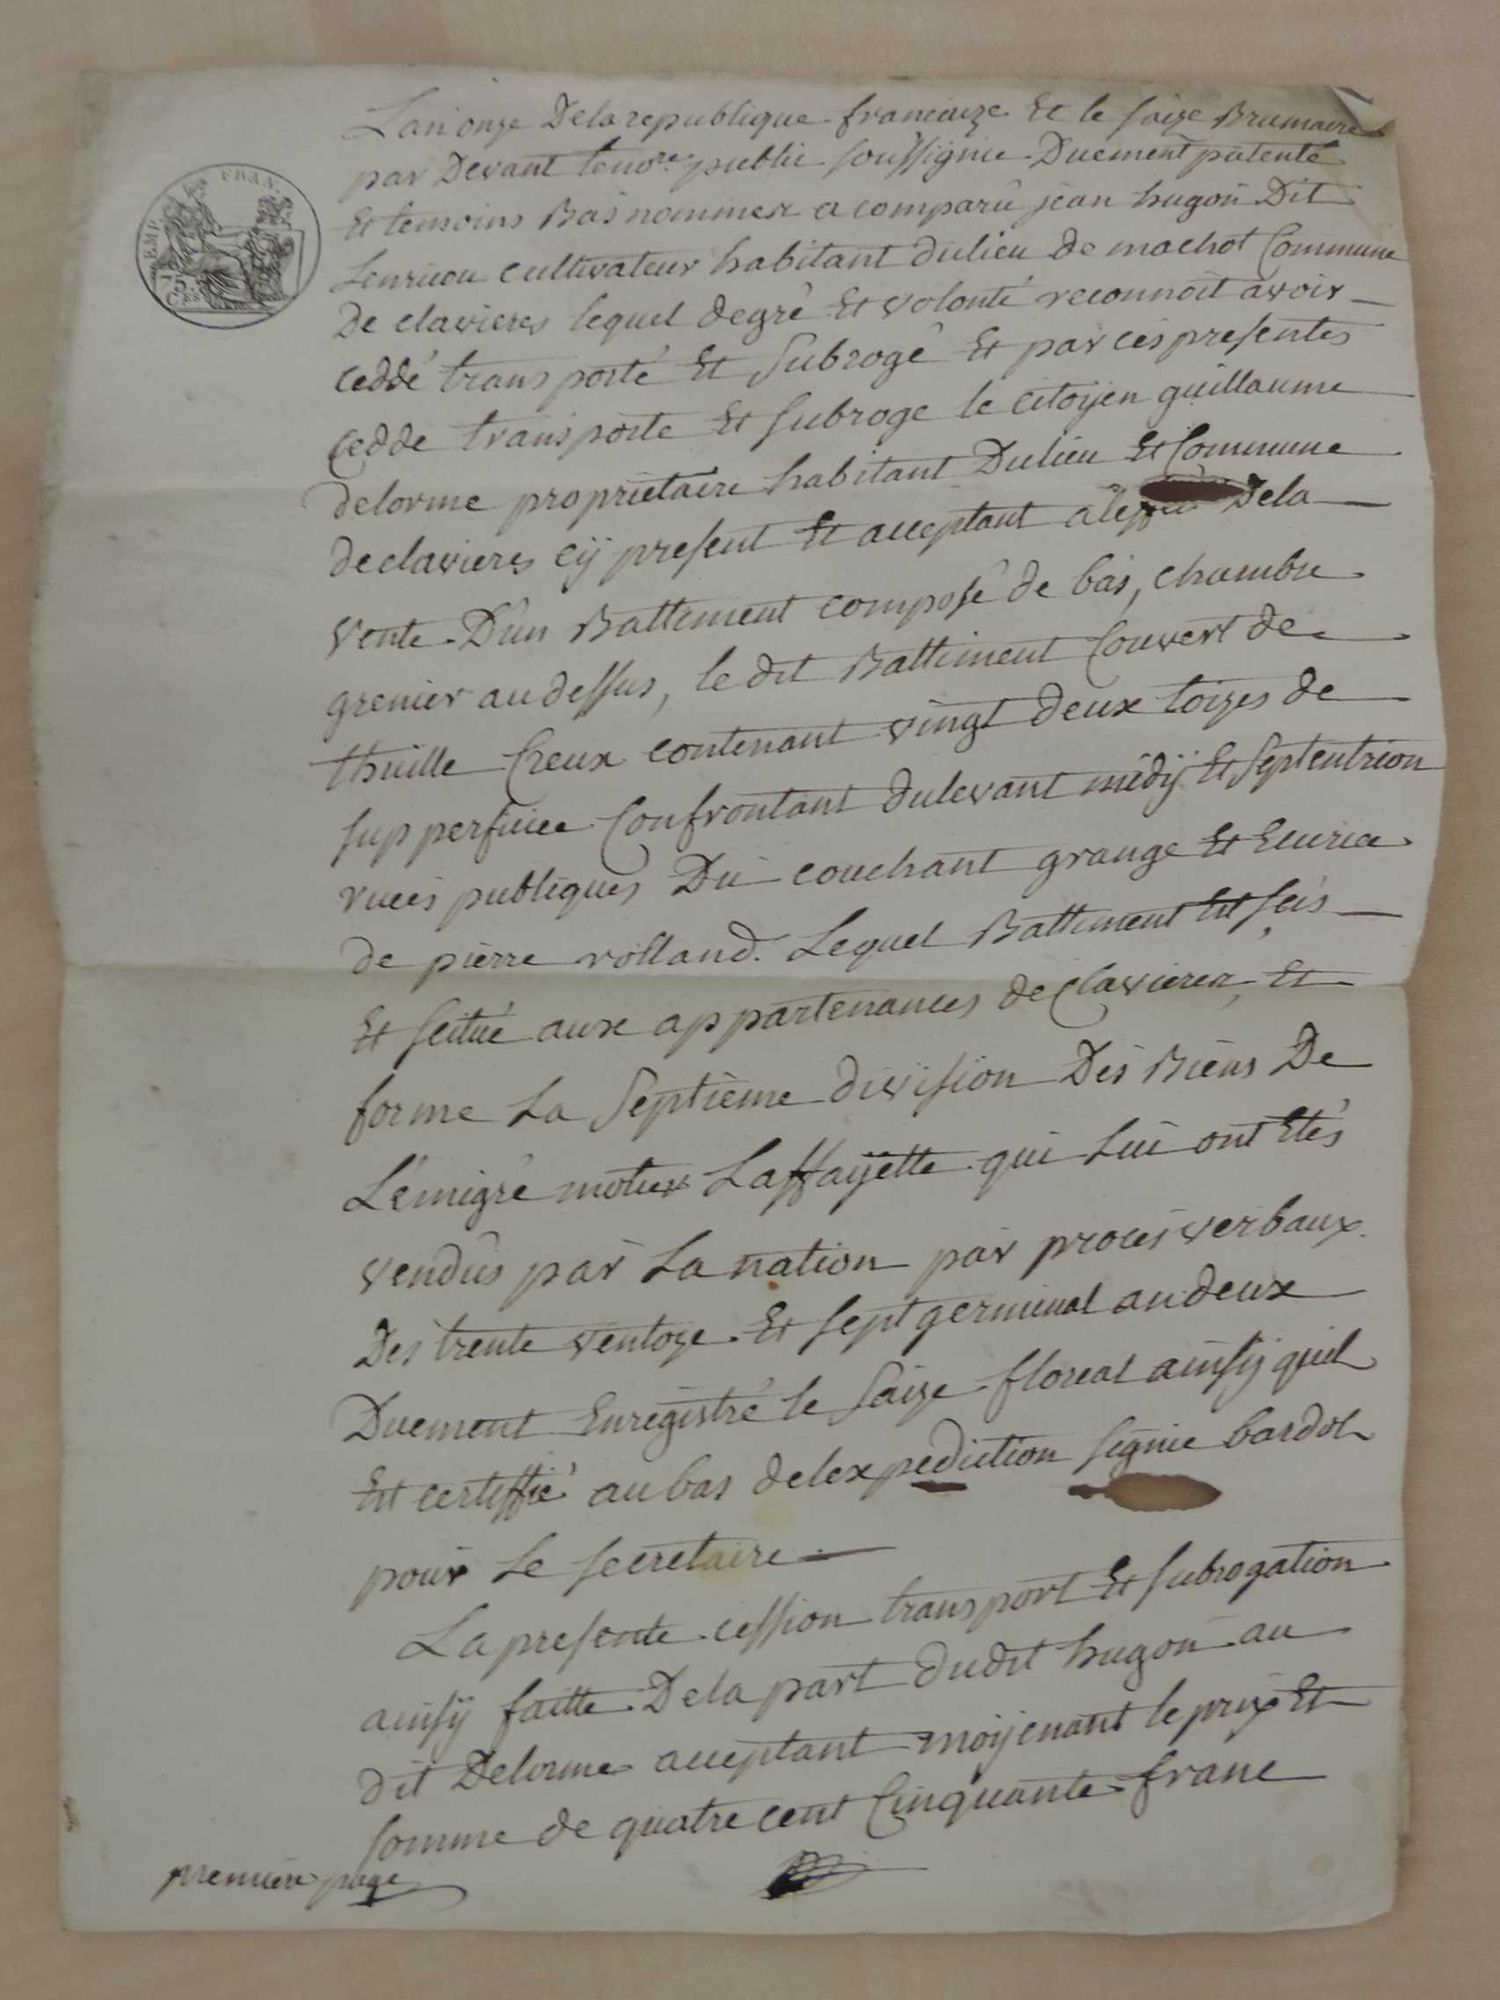 Lan onze Dela republique francaize Et le saize Brumaire
par Devant leno.re public soussignie Duement patenté
Et temoins Bas nommer a comparû jean hugon Dit
cultivateur habitant dulieu de machot Commune
De clavieres lequel degré Et volonté reconnoit avoir
Ceddé transporté Et Subrogé Et par ces presentes
Cedde transporte Et subroge le citoÿen guillaume
delorme propriétaire habitant Dulieu Et Commune
declavieres cÿ present Et acceptant Dela
Vente D'un Battement composé de bas, chambre
grenier audessus, le dit Battiment Couvert de
thuille Creux contenant vingt deux toizes de
supperficiee Confrontant dulevant midÿ Et Septentrion
ruees publiques Du couchant grange Et Ecurie
de pierre rolland. Lequel Battiment Est seis
Et scitué aux appartenances de Clavieres, Et
forme La Septième division Des Biens De
L'emigré motier Laffaÿette qui Lui ont Etés
vendûs par La nation par procés verbaux
Des trente ventoze Et sept germinal an deux
Duement Enregistré le saize floreal ainsÿ quil
Est certiffié au bas delexpediction signie bardol
pour Le secretaire
La presente cession transport Et subrogation
ainsÿ faitte Dela part dudit hugon au
dit Delorme acceptant moÿenant le prix Et
somme de quatre cent Cinquante franc
premiere page
EMP. FRAN.
75
C.es